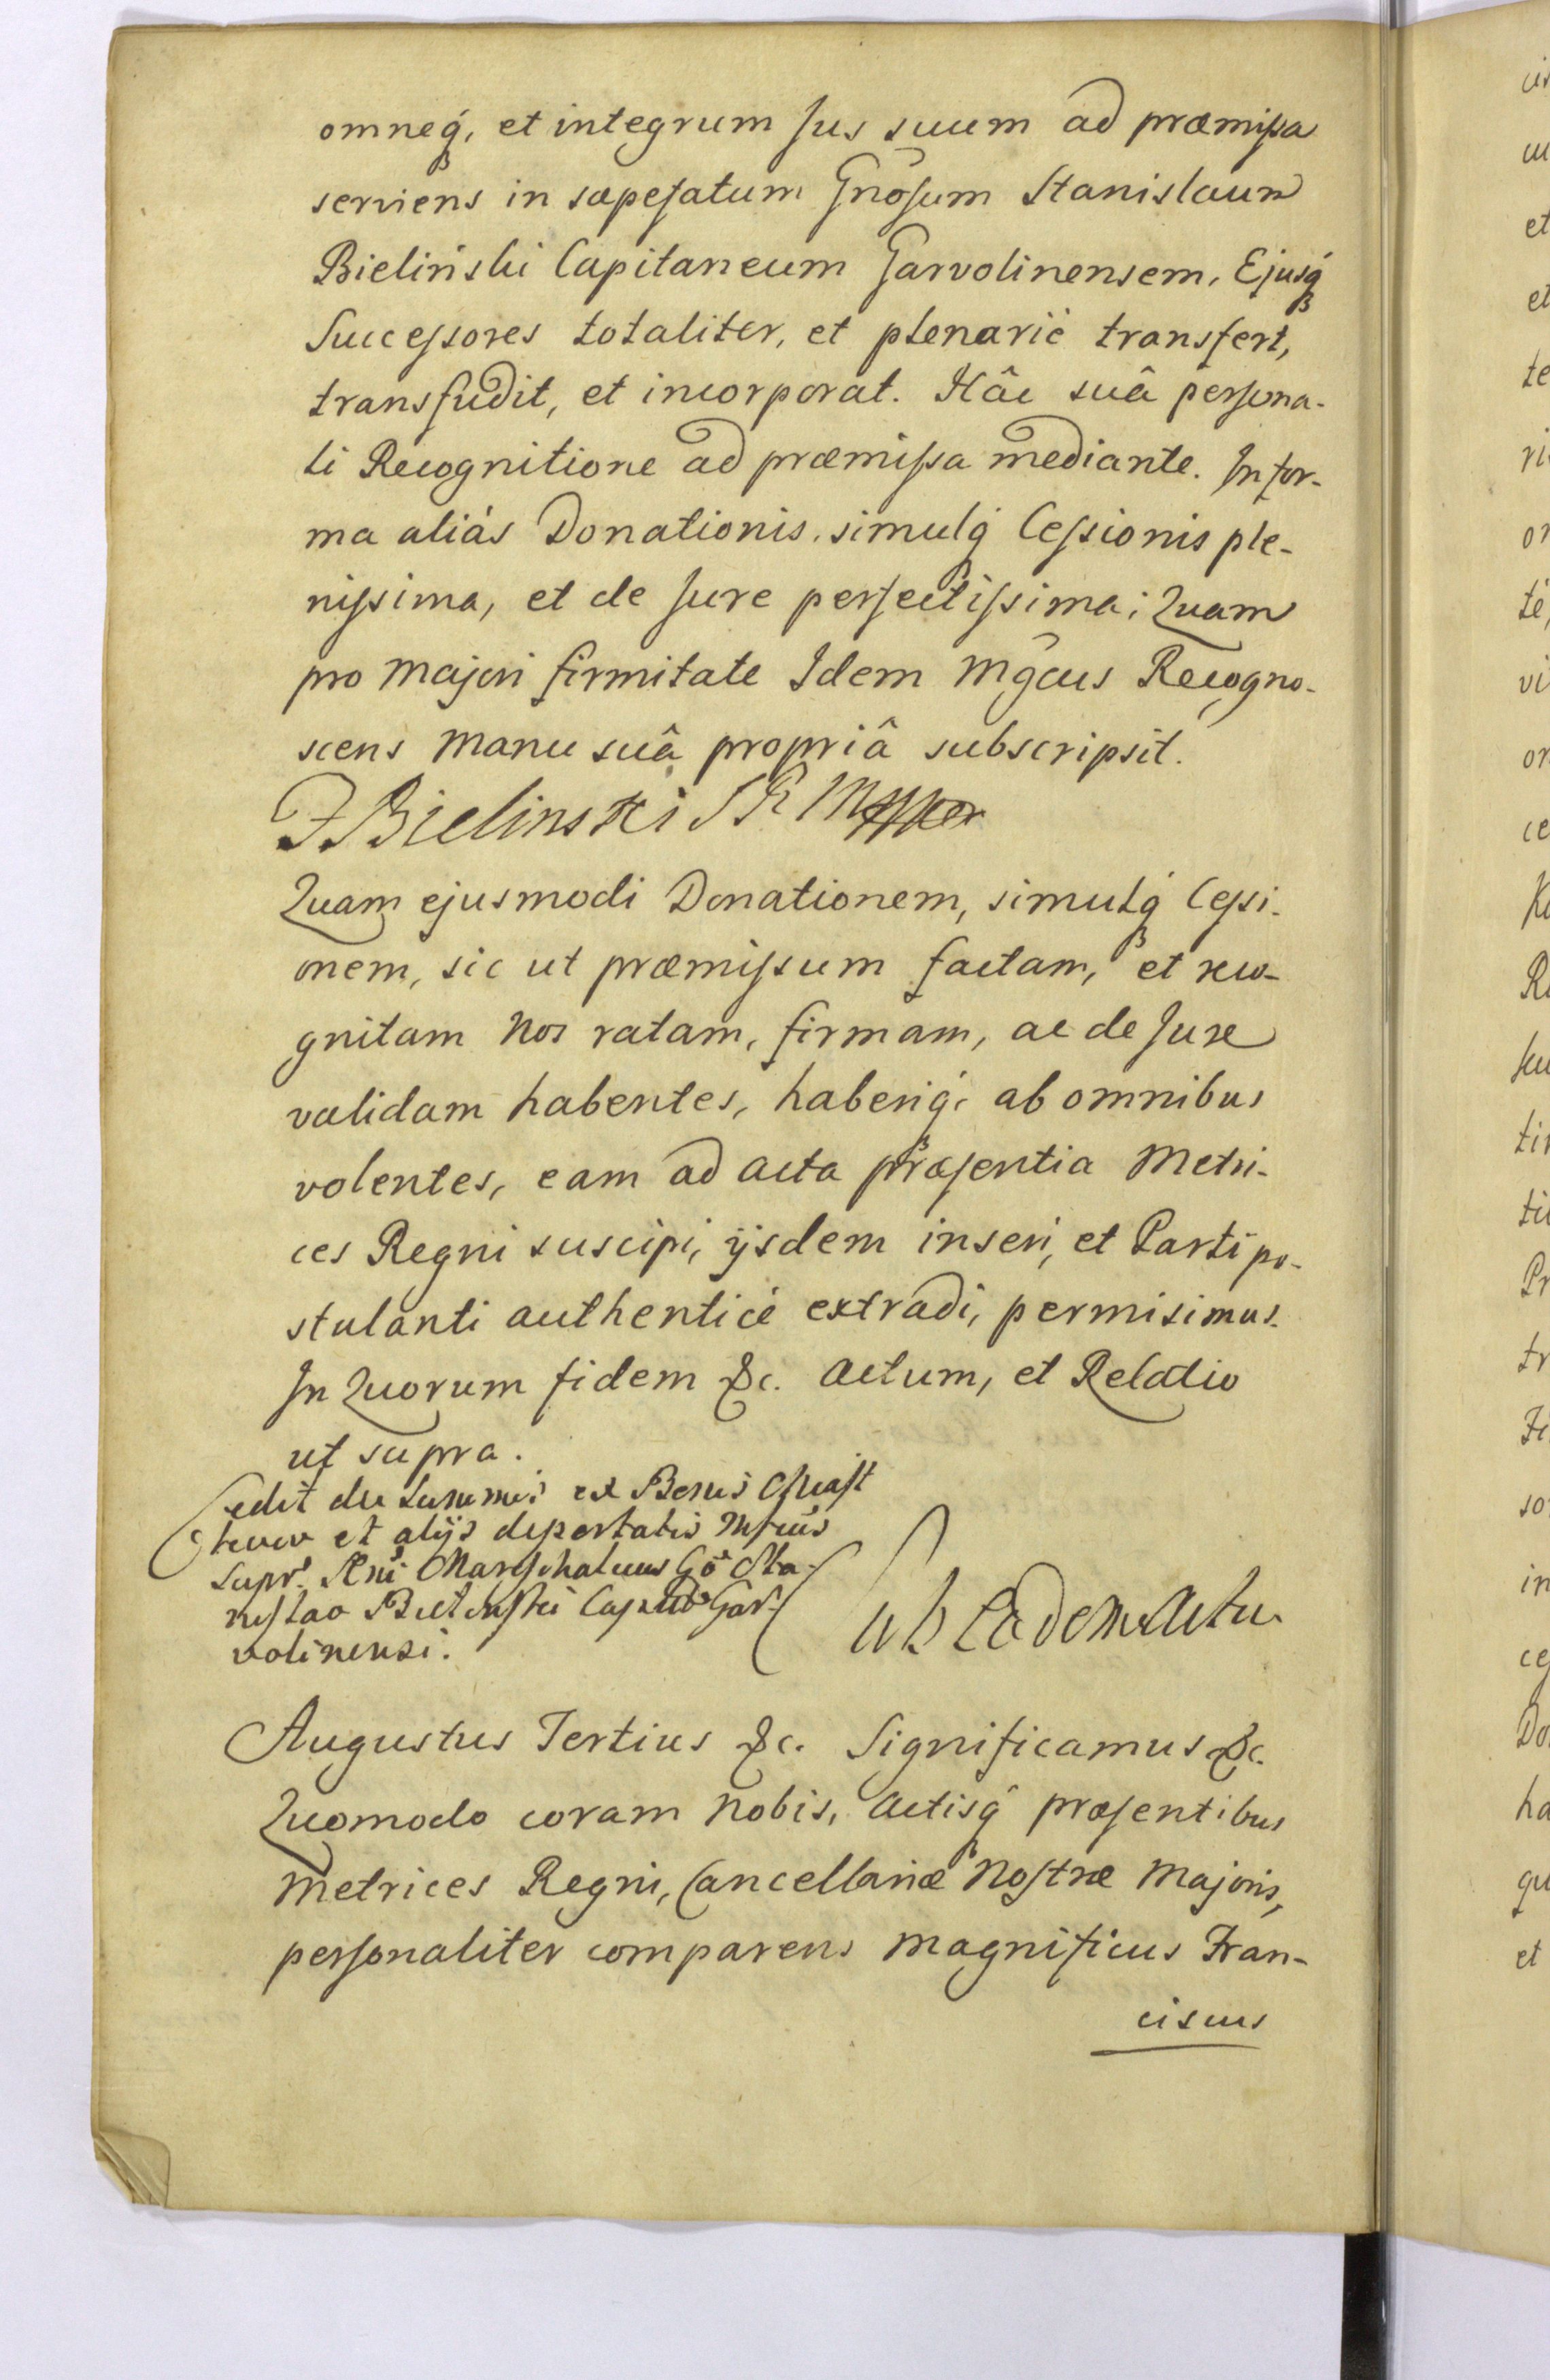 omneq₃, et integrum Jus suum ad præmissa
serviens in sæpefatum Gnõsum Stanislaum
Bieliński Capitaneum Garvolinensem, Ejusq₃
Successores totaliter, et plenariè transfert,
transfudit, et incorporat. Hâc suâ persona-
li Recognitione ad præmissa mediante. In for-
ma aliàs Donationis, simulq₃ Cessionis ple-
nissima, et de Jure perfectissima; Quam
pro majori firmitate Idem Mg̃cus Recogno-
scens manu suâ propriâ subscripsit.
F Bielinski
Quam ejusmodi Donationem, simulq₃ Cessi-
onem, sic ut præmissum factam, et reco-
gnitam Nos ratam, firmam, ac de Jure
validam habentes, haberiq₃ ab omnibus
volentes, eam ad acta præsentia Metri-
ces Regni suscipi, ijsdem inseri, et Parti po-
stulanti authenticè extradi, permisimus.
In Quorum fidem &c. Actum, et Relatio
ut supra.
Cedit de summis ex Bonis
et alijs deportatis
Supr. Marschalcus Gõ Sta-
nislao Bielinski Gar-
volinensi.
Sub Eodem Actu
Augustus Tertius &c. Significamus &c.
Quomodo coram Nobis, Actisq₃ præsentibus
Metrices Regni, Cancellariæ Nostræ Majoris,
personaliter comparens Magnificus Fran-
ciscus